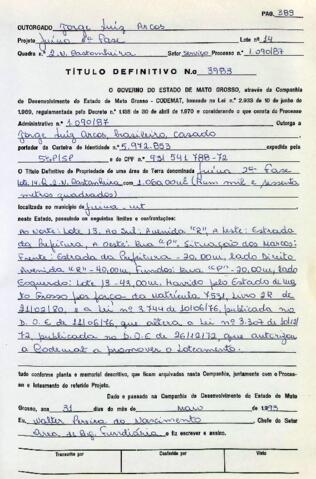 PAG. 389
OUTORGADO Jorge Luiz Arcos
Projeto Juína 2ª Fase Lote nº 14
Quadra nº 2.V. Castanheira Setor Serviço Processo nº 1.090/87
TÍTULO DEFINITIVO N.o 3983
O GOVERNO DO ESTADO DE MATO GROSSO, através da Companhia
de Desenvolvimento do Estado de Mato Grosso - CODEMAT, baseado na Lei n.º 2.933 de 10 de junho de
1969, regulamentada pelo Decreto n.º 1.138 de 30 de abril de 1970 e considerando o que consta do Processo
Administrativo n.º 1.090/87 Outorga a
Jorge Luiz Arcos, brasileiro, casado
portador da Carteira de Identidade n.º 5.972.853 expedida pela
SSP/SP e do CPF n.º 931 541 788-72
O Título Definitivo de Propriedade de uma área de Terra denominada Juína 2ª Fase
lote 14 Q. 2.V. Castanheira com 1.060.00m² (Hum mil e sessenta
metros quadrados)
localizada no município de Juína-MT
neste Estado, possuindo os seguintes limites e confrontações:
Ao Norte: Lote 13, Ao Sul: Avenida "R", A leste: Estrada
da Prefeitura, A Oeste: Rua "P", Situação dos Marcos:
Frente: Estrada da Prefeitura - 20,00m, lado Direito
Avenida "R" - 40,00m, Fundos: Rua "P" - 20,00m, lado
Esquerdo: Lote 13 - 43,00m. Havido pelo Estado de Mato
Grosso por força da matrícula 7531, livro 2R de
21/02/80, e a lei nº 3.744 de 10/06/76, publicada no
D.O.E de 11/06/76, que altera a Lei nº 3.307 de 10/12/
72, publicada no D.O.E de 26/12/72, que autorizou
a Codemat a promover o loteamento.
tudo conforme planta e memorial descritivo, que ficam arquivados nesta Companhia, juntamente com o Proces-
so e loteamento do referido Projeto.
Dado e passado na Companhia de Desenvolvimento do Estado de Mato
Grosso, aos 31 dias do mês de maio de 1993
Eu, Walter Pereira do Nascimento Chefe do Setor
Área de Reg. Fundiária o fiz escrever e assino.
Transcrito por Conferido por Visto